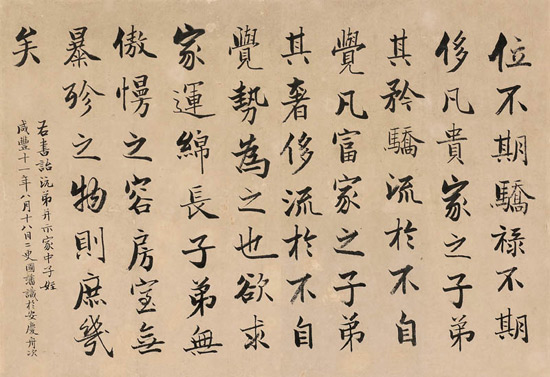 位不期驕禄不期
侈凡貴家之子弟
其矜驕流於不自
覺凡富家之子弟
其奢侈流於不自
覺勢為之也欲求
家運綿長子弟無
傲慢之容房室無
暴殄之物則庶幾
矣
右書詒沅弟并示家中子姪
咸豐十一年八月十八日國藩識於安慶舟次